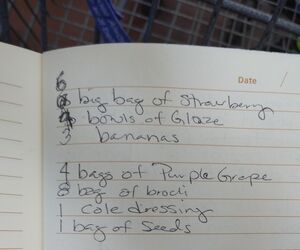 Date /
6
big bag of Strawberry
bowls of Glaze
3 bananas
4 bags of Purple Grape
8 bag of brocli
1 cole dressing
1 bag of Seeds